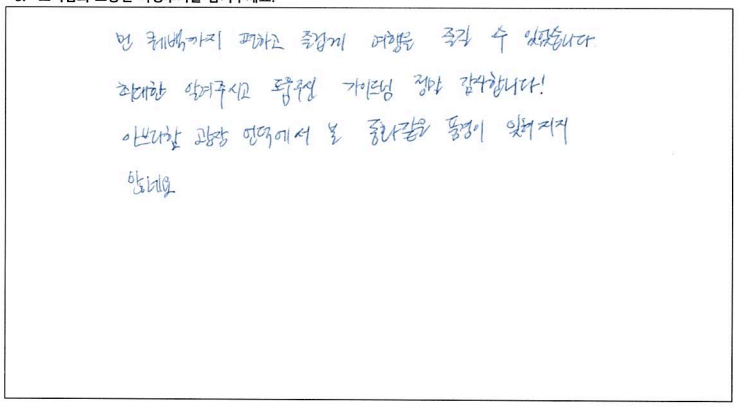 먼 퀘벡까지 편하고 즐겁게 여행을 즐길 수 있었습니다
최대한 알려주시고 도움주신 가이드님 정말 감사합니다!
아브라함 광장 언덕에서 본 동화같은 풍경이 잊혀지지
않네요